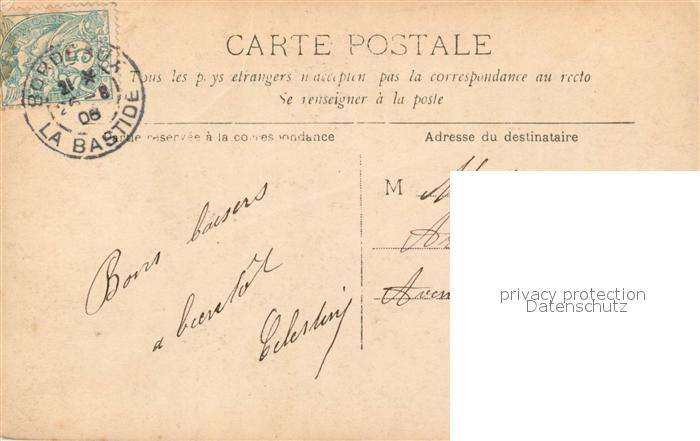 CARTE POSTALE
Tous les pays etrangers n'acceptent pas la correspondance au recto
Se renseigner à la poste
BORDEAUX
21
8
08
LA BASTIDE
Partie réservée à la correspondance
Adresse du destinataire
Bons baisers
a bientôt
Celestin
M
privacy protection
Datenschutz